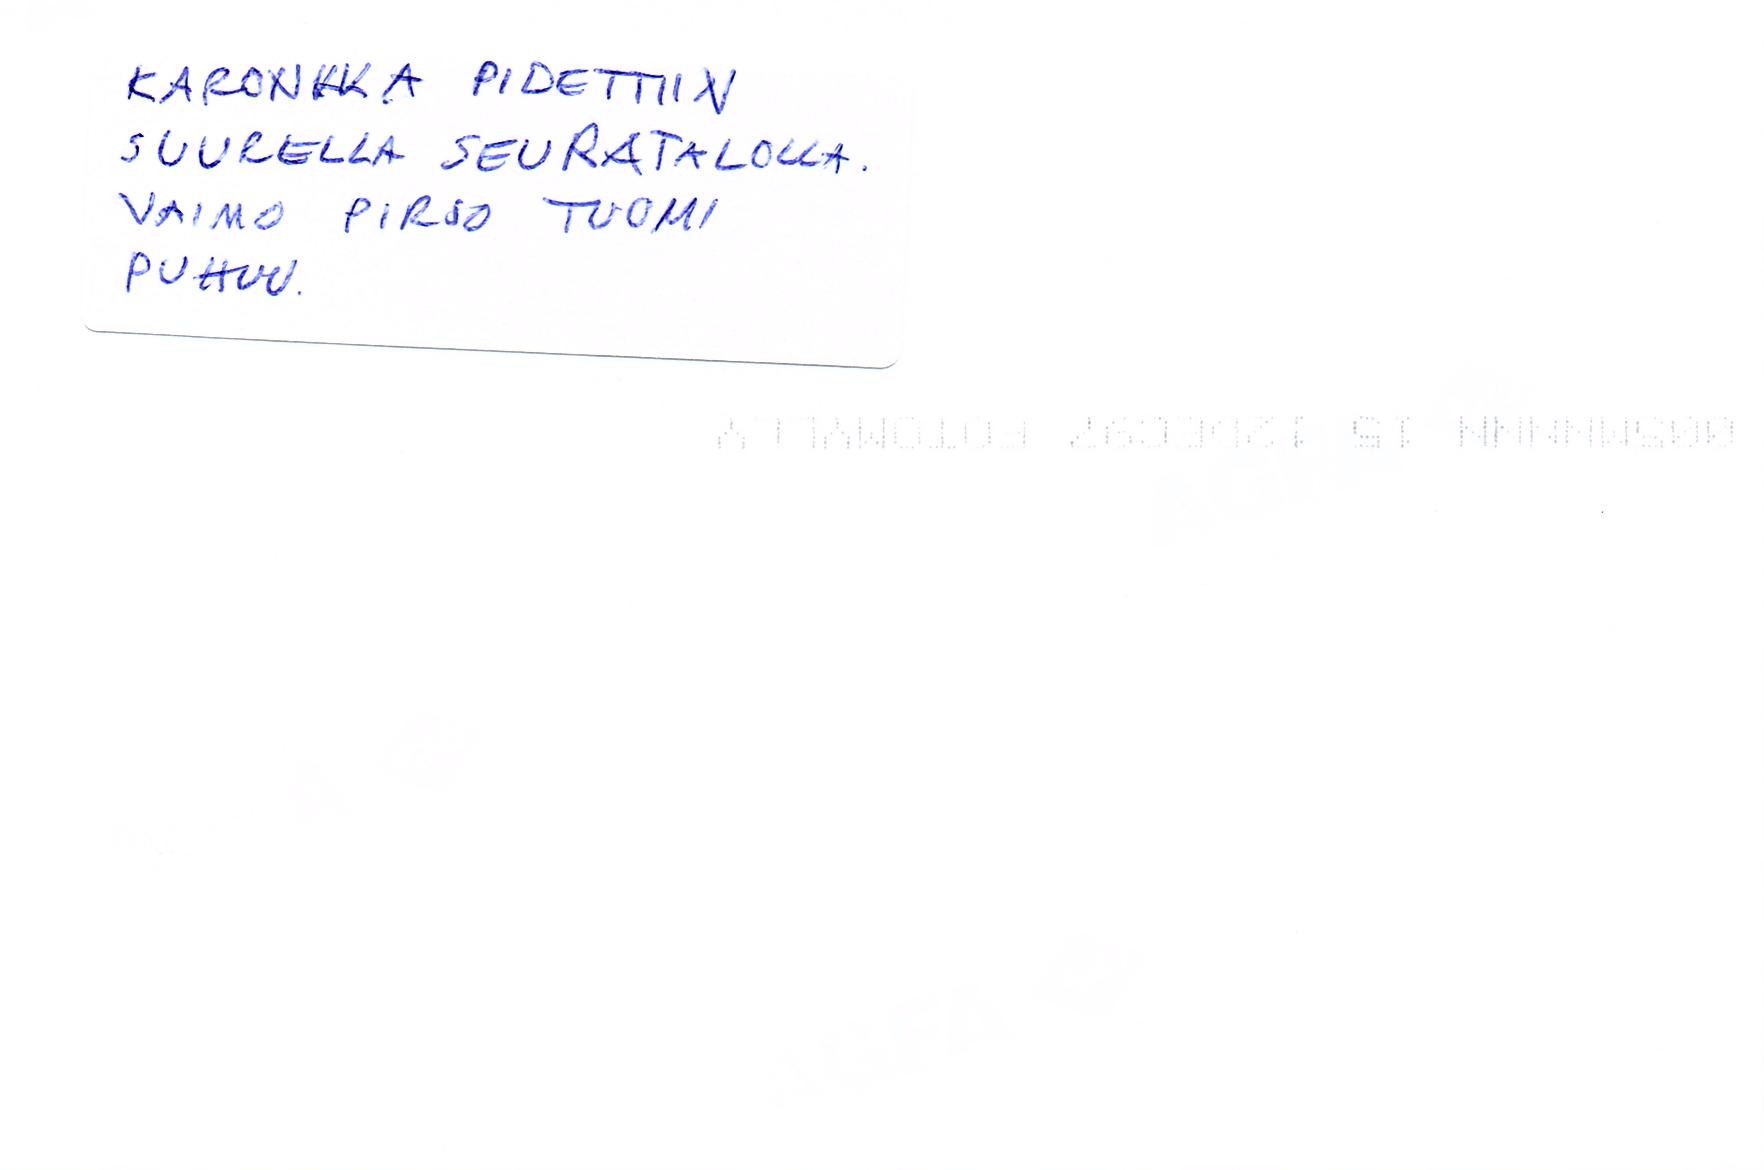 KARONKKA PIDETTIIN
SUURELLA SEURATALOLLA.
VAIMO PIRSO TUOMI
PUHUU.
AGFA